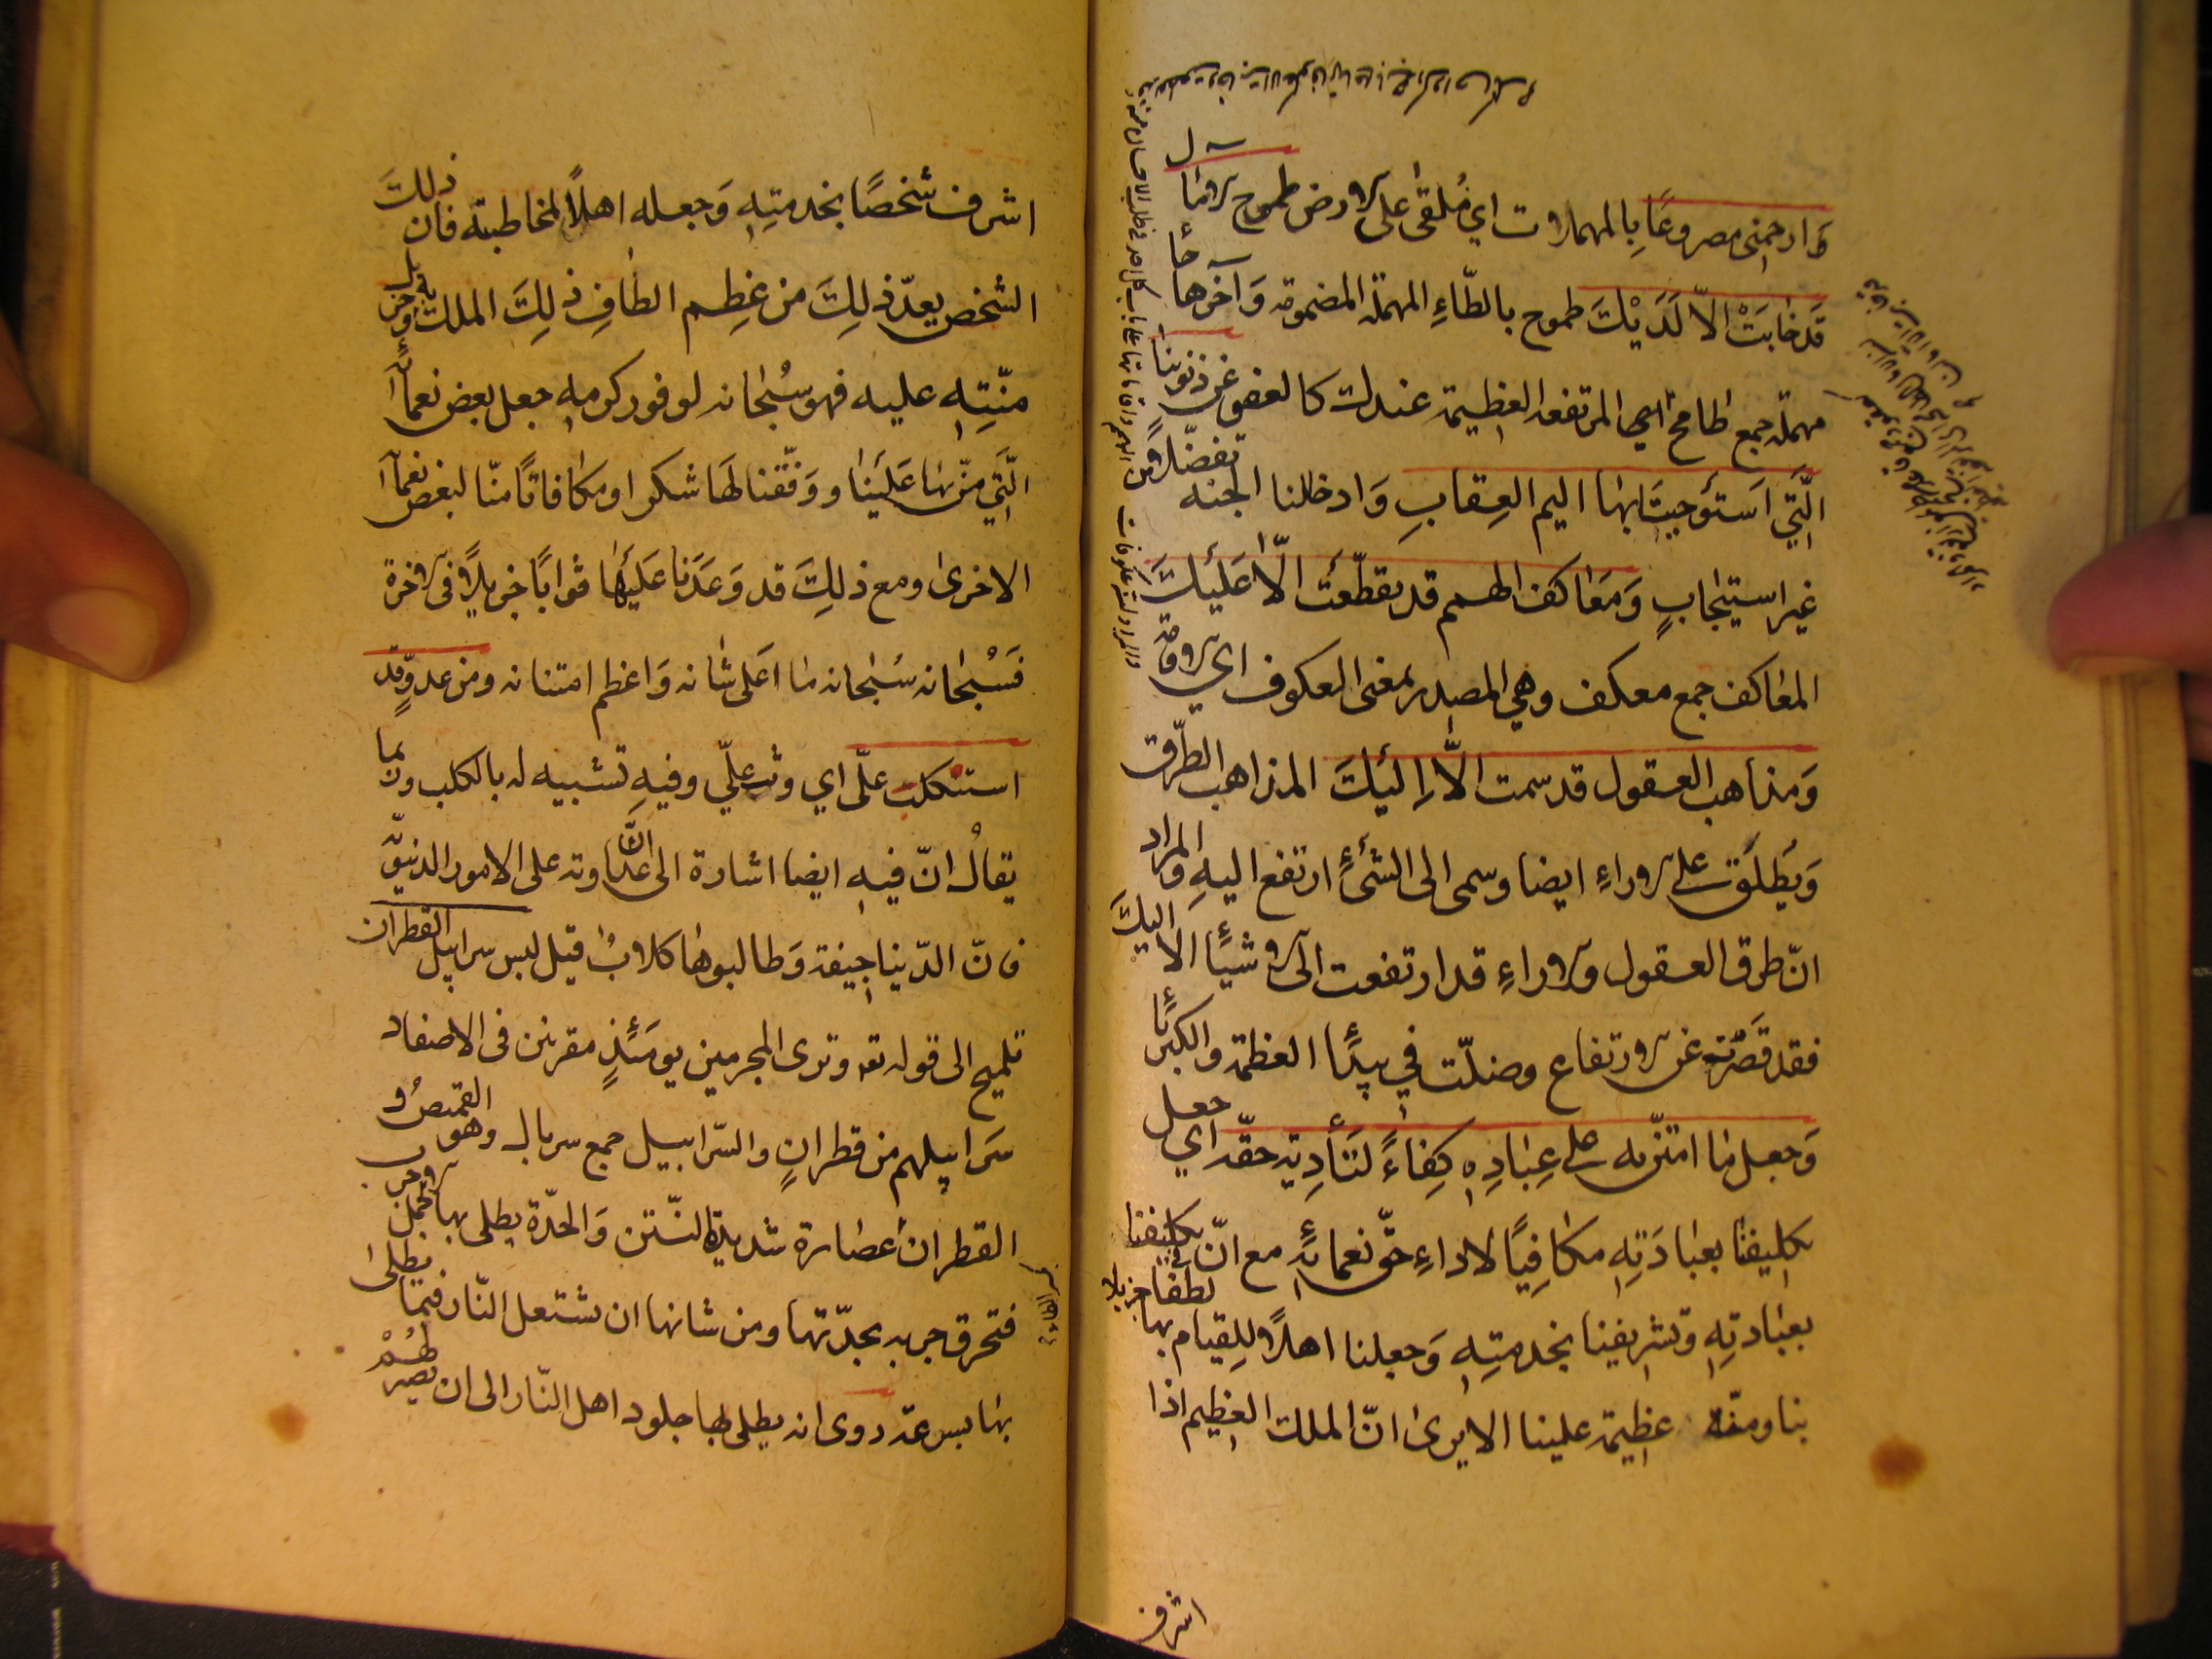 وارحمني مصروعًا بالمهملات اي مُلقى على الارض طموح الآمال
قَد خابَتْ الاّ لَدَيْكَ طموح بالطّاءِ المهملة المضمومة وَآخرها حاءٌ
مهملة جمع طامح اي المرتفعة العظيمة عندك كالعفو عن ذنوبنا
الَّتي استَوجبنا بها اليم العِقابِ وَادخالنا الجنه تفضّلا من
غير استيجابٍ وَمَعاكف الهمم قد تقطّعَت الّا عَلَيْكَ
المعاكف جمع معكف وهي المصدر بمعنى العكوف اي الاقامة
وَمذاهب العقول قد سمت الّا اِلَيْكَ المذاهب الطّرق
وَيُطلَق على الاراءِ ايضا وسمى الى الشئ ارتفع اليه والمراد
انّ طرق العقول والاراءِ قد ارتفعت الى الاشياء الا اليكَ
فقد قَصُرَت عن الارتفاع وضلّت في بيداء العظمة والكبرياء
وَجعل ما امتنّ به على عِبادِهِ كِفاءً لتَأدِية حقّه اي جعل
تكليفنا بعبادَتِهِ مكافِيًا لاداءِ حقّ نعمائِهِ مع انّ تكليفنا
بعبادتِهِ وتشريفنا بخدمتِهِ وَجعلنا اهلاً لِلقيام بها لطفا جزيلا
بنا ومنّة عظيمة علينا الا يرى انّ الملك العظيم اذا
اشرف
اشرف شخصًا بخدمتِهِ وَجعله اهلاً لمخاطبته فان ذلكَ
الشخص يعدّ ذلِكَ من عِظم الطافِ ذلِكَ الملك به وجزيل
منّتِهِ عليه فهو سُبحانه لوفور كرمه جعل بعض نعمائه
الَّتي منّ بها عَلَينا ووَفّقنا لَها شكرا ومكافاتًا منّا لبعض نعمائه
الاخرى ومع ذلِكَ قد وَعَدَنا عَلَيْها ثوابًا جزيلاً في الاخرة
فَسُبحانه سُبحانه ما اعلى شانه وَاعظم امتنانه ومن عدوٍّ قد
استكلب علّى اي وثب علىّ وفيهِ تشبيه له بالكلب وربما
يقالُ انّ فيه ايضا اشارة الى انّ عداوته على الامور الدنيويّة
فانّ الدّنيا جيفة وَطالبوها كلابٌ قيل لبس سرابيل القطران
تلميح الى قوله تع وترى المجرمين يومَئِذٍ مقرنين في الاصفاد
سَرابيلهم من قطرانٍ والسّرابيل جمع سربال وهو القميصُ و
القطران عصارة شديدة النّتن وَالحدّة يطلى بها الجمل الاجرب
فتحرق جربه بحدّتها ومن شانها ان تشتعل النّار فيما يطلى
بها بسرعة روى انه يطلى بها جلود اهل النّار الى ان تصير لهُمْ